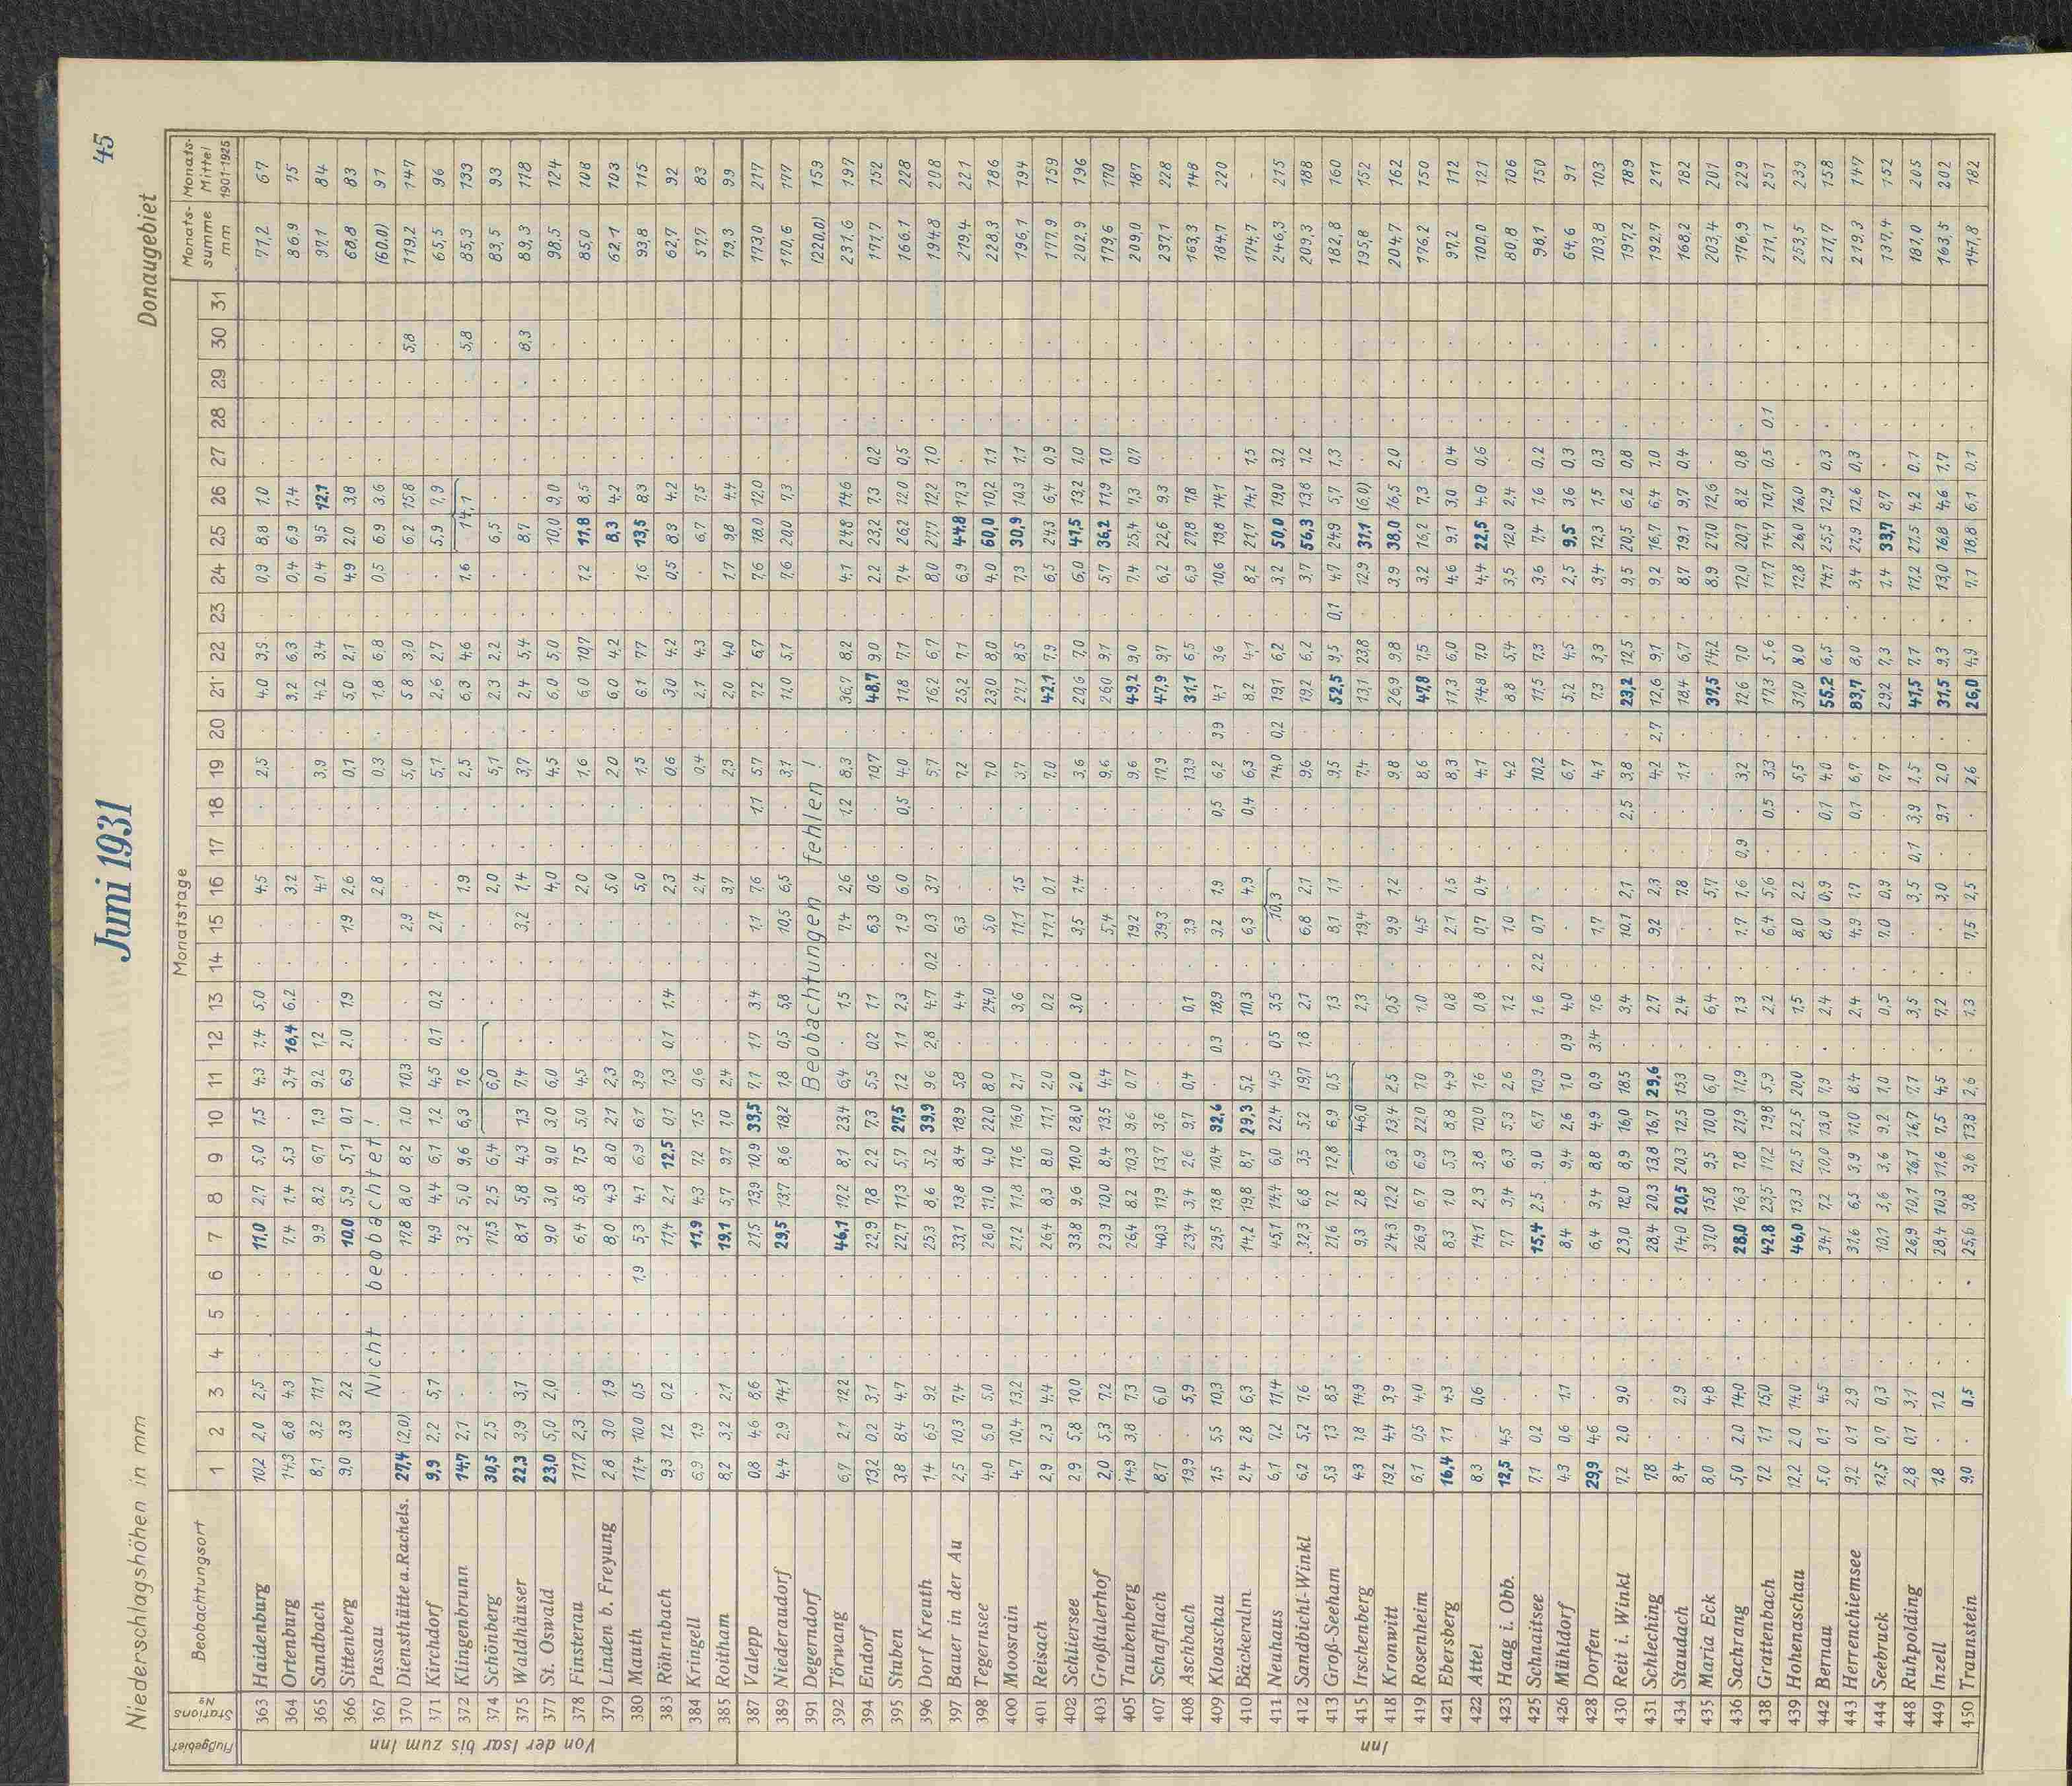 45
Juni 1931
Niederschlagshöhen in mm
Donaugebiet
Flußgebiet Stations № Beobachtungsort Monatstage Monats-summe mm Monats-Mittel 1901-1925
1 2 3 4 5 6 7 8 9 10 11 12 13 14 15 16 17 18 19 20 21 22 23 24 25 26 27 28 29 30 31
Von der Isar bis zum Inn
363 Haidenburg 10,2 2,0 2,5 11,0 2,7 5,0 1,5 4,3 1,4 5,0 4,5 2,5 4,0 3,9 0,9 8,8 1,0 71,2 67
364 Ortenburg 14,3 6,8 4,3 7,4 1,4 5,3 3,4 16,4 6,2 3,2 3,2 6,3 0,4 6,9 1,4 86,9 75
365 Sandbach 8,1 3,2 11,1 9,9 8,2 6,7 1,9 9,2 1,2 4,1 3,9 4,2 3,4 0,4 9,5 12,1 97,1 84
366 Sittenberg 9,0 3,3 2,2 10,0 5,9 5,1 0,1 6,9 2,0 1,9 1,9 2,6 0,1 5,0 2,1 4,9 2,0 3,8 68,8 83
367 Passau Nicht beobachtet! 2,8 0,3 1,8 6,8 0,5 6,9 3,6 (60,0) 91
370 Diensthütte a.Rachels. 27,4 (2,0) 17,8 8,0 8,2 1,0 10,3 2,9 5,0 5,8 3,0 6,2 15,8 5,8 119,2 147
371 Kirchdorf 9,9 2,2 5,7 4,9 4,4 6,1 1,2 4,5 0,1 0,2 2,7 5,1 2,6 2,7 5,9 7,9 65,5 96
372 Klingenbrunn 14,7 2,1 3,2 5,0 9,6 6,3 7,6 1,9 2,5 6,3 4,6 1,6 14,1 5,8 85,3 133
374 Schönberg 30,5 2,5 17,5 2,5 6,4 6,0 2,0 5,1 2,3 2,2 6,5 83,5 93
375 Waldhäuser 22,3 3,9 3,1 8,1 5,8 4,3 1,3 7,4 3,2 1,4 3,7 2,4 5,4 8,7 8,3 89,3 118
377 St. Oswald 23,0 5,0 2,0 9,0 3,0 9,0 3,0 6,0 4,0 4,5 6,0 5,0 10,0 9,0 98,5 124
378 Finsterau 11,7 2,3 6,4 5,8 7,5 5,0 4,5 2,0 1,6 6,0 10,7 1,2 11,8 8,5 85,0 108
379 Linden b. Freyung 2,8 3,0 1,9 8,0 4,3 8,0 2,1 2,3 5,0 2,0 6,0 4,2 8,3 4,2 62,1 103
380 Mauth 11,4 10,0 0,5 1,9 5,3 4,1 6,9 6,1 3,9 5,0 1,5 6,1 7,7 1,6 13,5 8,3 93,8 115
383 Röhrnbach 9,3 1,2 0,2 11,4 2,1 12,5 0,1 1,3 0,1 1,4 2,3 0,6 3,0 4,2 0,5 8,3 4,2 62,7 92
384 Kringell 6,9 1,9 11,9 4,3 7,2 1,5 0,6 2,4 0,4 2,1 4,3 6,7 7,5 57,7 83
385 Rotham 8,2 3,2 2,1 19,1 5,7 9,7 1,0 2,4 3,7 2,9 2,0 4,0 1,7 9,8 4,4 79,3 99
Inn
387 Valepp 0,8 4,6 8,6 21,5 13,9 10,9 33,5 7,1 1,7 3,4 1,1 7,6 1,1 5,7 7,2 6,7 7,6 18,0 12,0 173,0 217
389 Niederaudorf 4,4 2,9 14,1 29,5 13,7 8,6 18,2 1,8 0,5 5,8 10,5 6,5 3,1 11,0 5,1 7,6 20,0 7,3 170,6 177
391 Degerndorf Beobachtungen fehlen! (220,0) 159
392 Törwang 6,7 2,1 12,2 46,1 17,2 8,1 23,4 6,4 1,5 7,4 2,6 1,2 8,3 36,7 8,2 4,1 24,8 14,6 231,6 197
394 Endorf 13,2 0,2 3,1 22,9 7,8 2,2 7,3 5,5 0,2 1,1 6,3 0,6 10,7 48,7 9,0 2,2 23,2 7,3 0,2 171,7 152
395 Stuben 3,8 8,4 4,7 22,7 11,3 5,7 27,5 1,2 1,1 2,3 1,9 6,0 0,5 4,0 11,8 7,1 7,4 26,2 12,0 0,5 166,1 228
396 Dorf Kreuth 1,4 6,5 9,2 25,3 8,6 5,2 39,9 9,6 2,8 4,7 0,2 0,3 3,7 5,7 16,2 6,7 8,0 27,7 12,2 1,0 194,8 208
397 Bauer in der Au 2,5 10,3 7,4 33,1 13,8 8,4 18,9 5,8 4,4 6,3 7,2 25,2 7,1 6,9 44,8 17,3 219,4 221
398 Tegernsee 4,0 6,0 5,0 26,0 11,0 4,0 22,0 8,0 24,0 5,0 7,0 23,0 8,0 4,0 60,0 10,2 1,1 228,3 186
400 Moosrain 4,7 10,4 13,2 21,2 11,8 11,6 16,0 2,1 3,6 11,1 1,5 3,7 27,1 8,5 7,3 30,9 10,3 1,1 196,1 194
401 Reisach 2,9 2,3 4,4 26,4 8,3 8,0 11,1 2,0 0,2 17,1 0,1 7,0 42,1 7,9 6,5 24,3 6,4 0,9 177,9 159
402 Schliersee 2,9 5,8 10,0 33,8 9,6 10,0 28,0 2,0 3,0 3,5 1,4 3,6 20,6 7,0 6,0 41,5 13,2 1,0 202,9 196
403 Großtalerhof 2,0 5,3 7,2 23,9 10,0 8,4 13,5 4,4 5,4 9,6 26,0 9,1 5,7 36,2 11,9 1,0 179,6 170
405 Taubenberg 14,9 3,8 7,3 26,4 8,2 10,3 9,6 0,7 19,2 9,6 49,2 9,0 7,4 25,4 7,3 0,7 209,0 187
407 Schaftlach 8,7 6,0 40,3 11,9 13,7 3,6 39,3 17,9 47,9 9,7 6,2 22,6 9,3 237,1 228
408 Aschbach 19,9 5,9 23,4 3,4 2,6 9,7 0,4 0,1 3,9 13,9 31,1 6,5 6,9 27,8 7,8 163,3 148
409 Klouschau 1,5 5,5 10,3 29,5 13,8 10,4 32,6 0,3 18,9 3,2 1,9 0,5 6,2 3,9 4,1 3,6 10,6 13,8 14,1 184,7 220
410 Bäckeralm 2,4 2,8 6,3 14,2 19,8 8,7 29,3 5,2 10,3 6,3 4,9 0,4 6,3 8,2 4,1 8,2 21,7 14,1 1,5 174,7 -
411 Neuhaus 6,1 7,2 11,4 45,1 14,4 6,0 22,4 4,5 0,5 3,5 10,3 14,0 0,2 19,1 6,2 3,2 50,0 19,0 3,2 246,3 215
412 Sandbichl-Winkl 6,2 5,2 7,6 32,3 6,8 3,5 5,2 19,7 1,8 2,1 6,8 2,1 9,6 19,2 6,2 3,7 56,3 13,8 1,2 209,3 188
413 Groß-Seeham 5,3 1,3 8,5 21,6 7,2 12,8 6,9 0,5 1,3 8,1 1,1 9,5 52,5 9,5 0,1 4,7 24,9 5,7 1,3 182,8 160
415 Irschenberg 4,3 1,8 14,9 9,3 2,8 46,0 2,3 19,4 7,4 13,1 23,8 12,9 31,1 (6,0) 195,8 152
418 Kronwitt 19,2 4,4 3,9 24,3 12,2 6,3 13,4 2,5 0,5 9,9 1,2 9,8 26,9 9,8 3,9 38,0 16,5 2,0 204,7 162
419 Rosenheim 6,1 0,5 4,0 26,9 6,7 6,9 22,0 7,0 1,0 4,5 8,6 47,8 7,5 3,2 16,2 7,3 176,2 150
421 Ebersberg 16,4 1,1 4,3 8,3 1,0 5,3 8,8 4,9 0,8 2,1 1,5 8,3 11,3 6,0 4,6 9,1 3,0 0,4 97,2 112
422 Attel 8,3 0,6 14,1 2,3 3,8 10,0 1,6 0,8 0,7 0,4 4,1 14,8 7,0 4,4 22,5 4,0 0,6 100,0 121
423 Haag i. Obb. 12,5 4,5 7,7 3,4 6,3 5,3 2,6 1,2 1,0 4,2 8,8 5,4 3,5 12,0 2,4 80,8 106
425 Schnaitsee 7,1 0,2 15,4 2,5 9,0 6,7 10,9 1,6 2,2 0,7 10,2 11,5 7,3 3,6 7,4 1,6 0,2 98,1 150
426 Mühldorf 4,3 0,6 1,1 8,4 9,4 2,6 1,0 0,9 4,0 6,7 5,2 4,5 2,5 9,5 3,6 0,3 64,6 91
428 Dorfen 29,9 4,6 6,4 3,4 8,8 4,9 0,9 3,4 7,6 1,7 4,1 7,3 3,3 3,4 12,3 1,5 0,3 103,8 103
430 Reit i. Winkl 7,2 2,0 9,0 23,0 18,0 8,9 16,0 18,5 3,4 10,1 2,1 2,5 3,8 23,2 12,5 9,5 20,5 6,2 0,8 197,2 189
431 Schleching 7,8 28,4 20,3 13,8 16,7 29,6 2,7 9,2 2,3 4,2 2,7 12,6 9,1 9,2 16,7 6,4 1,0 192,7 211
434 Staudach 8,4 2,9 14,0 20,5 20,3 12,5 15,3 2,4 7,8 1,1 18,4 6,7 8,7 19,1 9,7 0,4 168,2 182
435 Maria Eck 8,0 4,8 37,0 15,8 9,5 10,0 6,0 6,4 5,7 37,5 14,2 8,9 27,0 12,6 203,4 201
436 Sachrang 5,0 2,0 14,0 28,0 16,3 7,8 21,9 11,9 1,3 1,7 1,6 0,9 3,2 12,6 7,0 12,0 20,7 8,2 0,8 176,9 229
438 Grattenbach 7,2 1,1 15,0 42,8 23,5 17,2 19,8 5,9 2,2 6,4 5,6 0,5 3,3 17,3 5,6 11,7 14,7 10,7 0,5 0,1 211,1 251
439 Hohenaschau 12,2 2,0 14,0 46,0 13,3 12,5 22,5 20,0 1,5 8,0 2,2 5,5 31,0 8,0 12,8 26,0 16,0 253,5 239
442 Bernau 5,0 0,1 4,5 34,1 7,2 10,0 13,0 7,9 2,4 8,0 0,9 0,1 4,0 55,2 6,5 14,1 25,5 12,9 0,3 211,7 158
443 Herrenchiemsee 9,2 0,1 2,9 31,6 6,5 3,9 11,0 8,4 2,4 4,9 1,7 0,1 6,7 83,7 8,0 3,4 21,9 12,6 0,3 219,3 147
444 Seebruck 12,5 0,7 0,3 10,1 3,6 3,6 9,2 1,0 0,5 7,0 0,9 7,7 29,2 7,3 1,4 33,7 8,7 137,4 152
448 Ruhpolding 2,8 0,1 3,1 26,9 10,1 16,1 16,7 7,7 3,5 3,5 0,1 3,9 1,5 41,5 7,1 17,2 21,5 4,2 0,1 187,0 205
449 Inzell 1,8 1,2 28,4 10,3 11,6 7,5 4,5 7,2 3,0 9,1 2,0 31,5 9,3 13,0 16,8 4,6 1,7 163,5 202
450 Traunstein 9,0 0,5 25,6 9,8 3,6 13,8 2,6 1,3 7,5 2,5 2,6 26,0 4,9 7,1 18,8 6,1 0,1 147,8 182